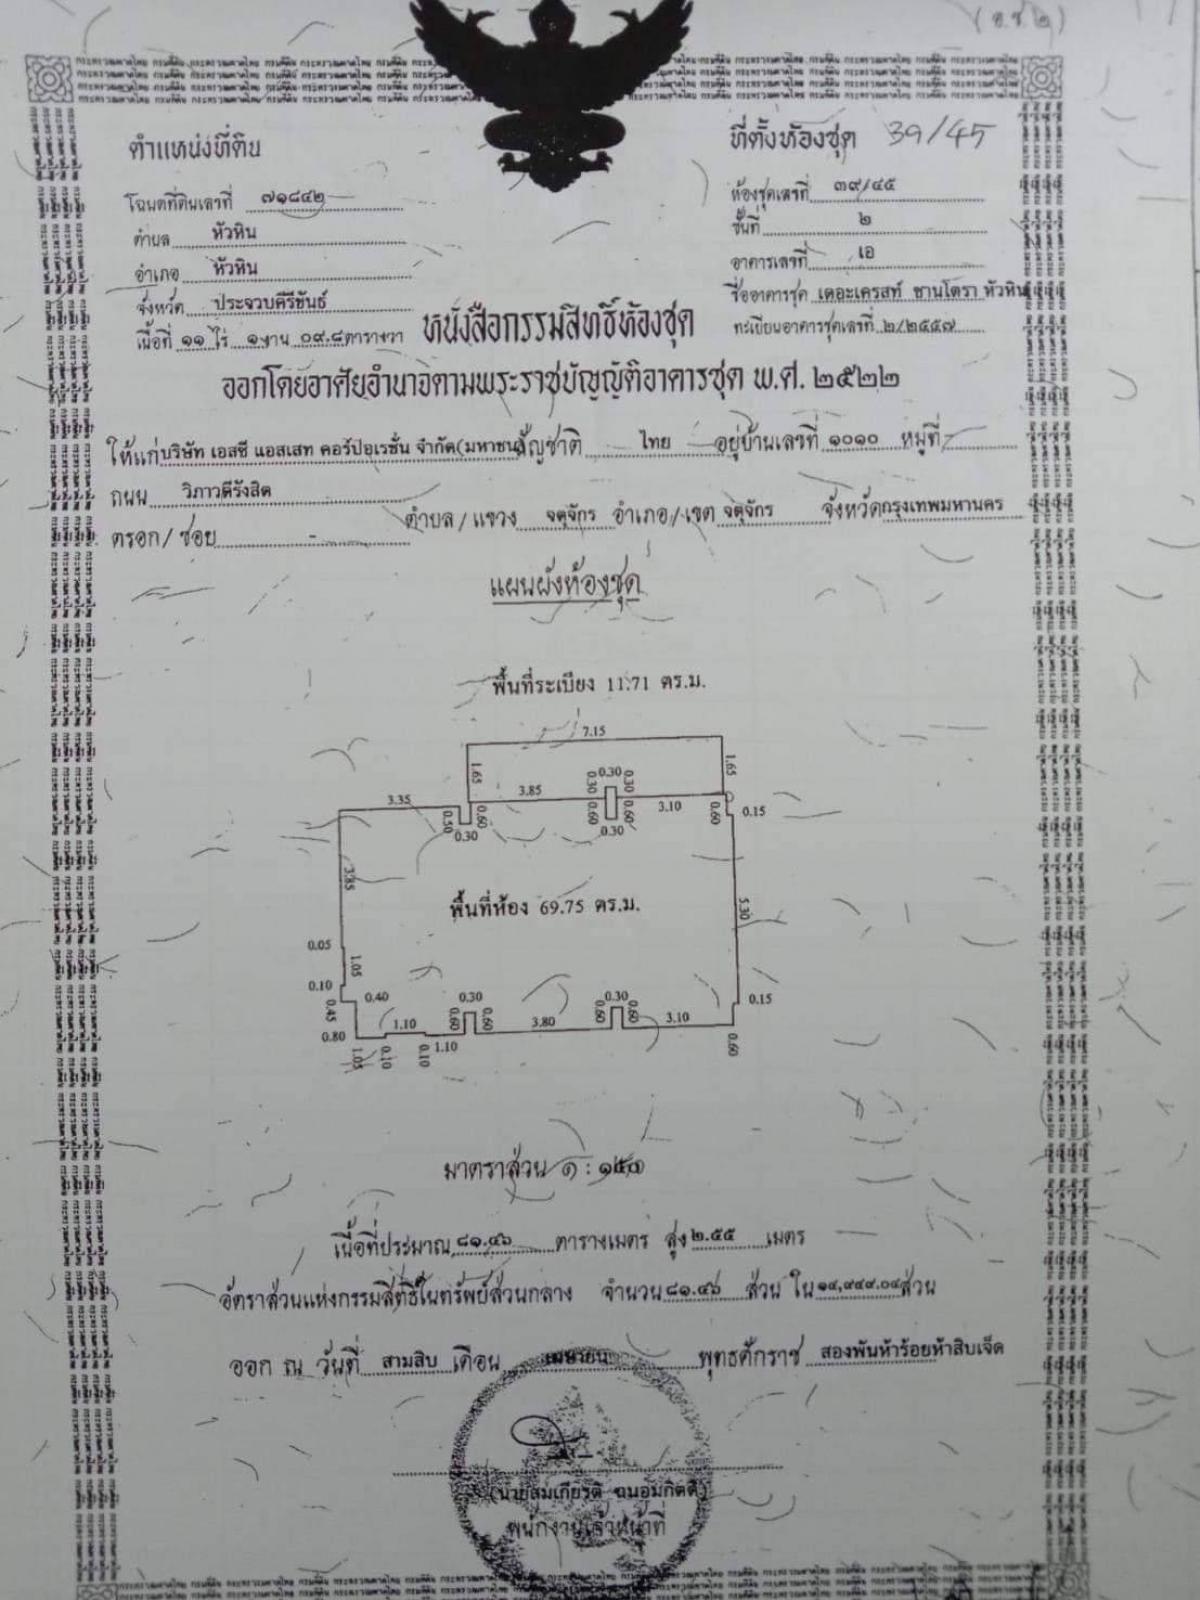 (อ.ช.๒)
ตำแหน่งที่ดิน
โฉนดที่ดินเลขที่ ๗๑๘๔๒
ตำบล หัวหิน
อำเภอ หัวหิน
จังหวัด ประจวบคีรีขันธ์
เนื้อที่ ๑๑ ไร่ ๑ งาน ๐๙.๘ ตารางวา
ที่ตั้งห้องชุด 39/45
ห้องชุดเลขที่ ๓๙/๔๕
ชั้นที่ ๒
อาคารเลขที่ เอ
ชื่ออาคารชุด เดอะเครสท์ ซานโตรา หัวหิน
ทะเบียนอาคารชุดเลขที่ ๒/๒๕๕๗
หนังสือกรรมสิทธิ์ห้องชุด
ออกโดยอาศัยอำนาจตามพระราชบัญญัติอาคารชุด พ.ศ. ๒๕๒๒
ให้แก่ บริษัท เอสซี แอสเสท คอร์ปอเรชั่น จำกัด(มหาชน) สัญชาติ ไทย อยู่บ้านเลขที่ ๑๐๑๐ หมู่ที่ -
ถนน วิภาวดีรังสิต
ตรอก/ซอย - ตำบล/แขวง จตุจักร อำเภอ/เขต จตุจักร จังหวัด กรุงเทพมหานคร
แผนผังห้องชุด
พื้นที่ระเบียง 11.71 ตร.ม.
7.15
1.65 1.65
3.35 3.85 0.30 0.30 0.30 3.10
0.50 0.30 0.60 0.60 0.30 0.60 0.60 0.15
3.85
พื้นที่ห้อง 69.75 ตร.ม.
5.30
0.05
1.05
0.10 0.40 0.30 0.30 0.15
0.45 1.10 0.60 0.60 3.80 0.60 0.60 3.10
0.80 1.05 0.10 0.10 1.10 0.60
มาตราส่วน ๑ : ๑๕๐
เนื้อที่ประมาณ ๘๑.๔๖ ตารางเมตร สูง ๒.๕๕ เมตร
อัตราส่วนแห่งกรรมสิทธิ์ในทรัพย์ส่วนกลาง จำนวน ๘๑.๔๖ ส่วน ใน ๑๔,๙๔๙.๐๔ ส่วน
ออก ณ วันที่ สามสิบ เดือน เมษายน พุทธศักราช สองพันห้าร้อยห้าสิบเจ็ด
(นายสมเกียรติ ถนอมกิตติ)
พนักงานเจ้าหน้าที่